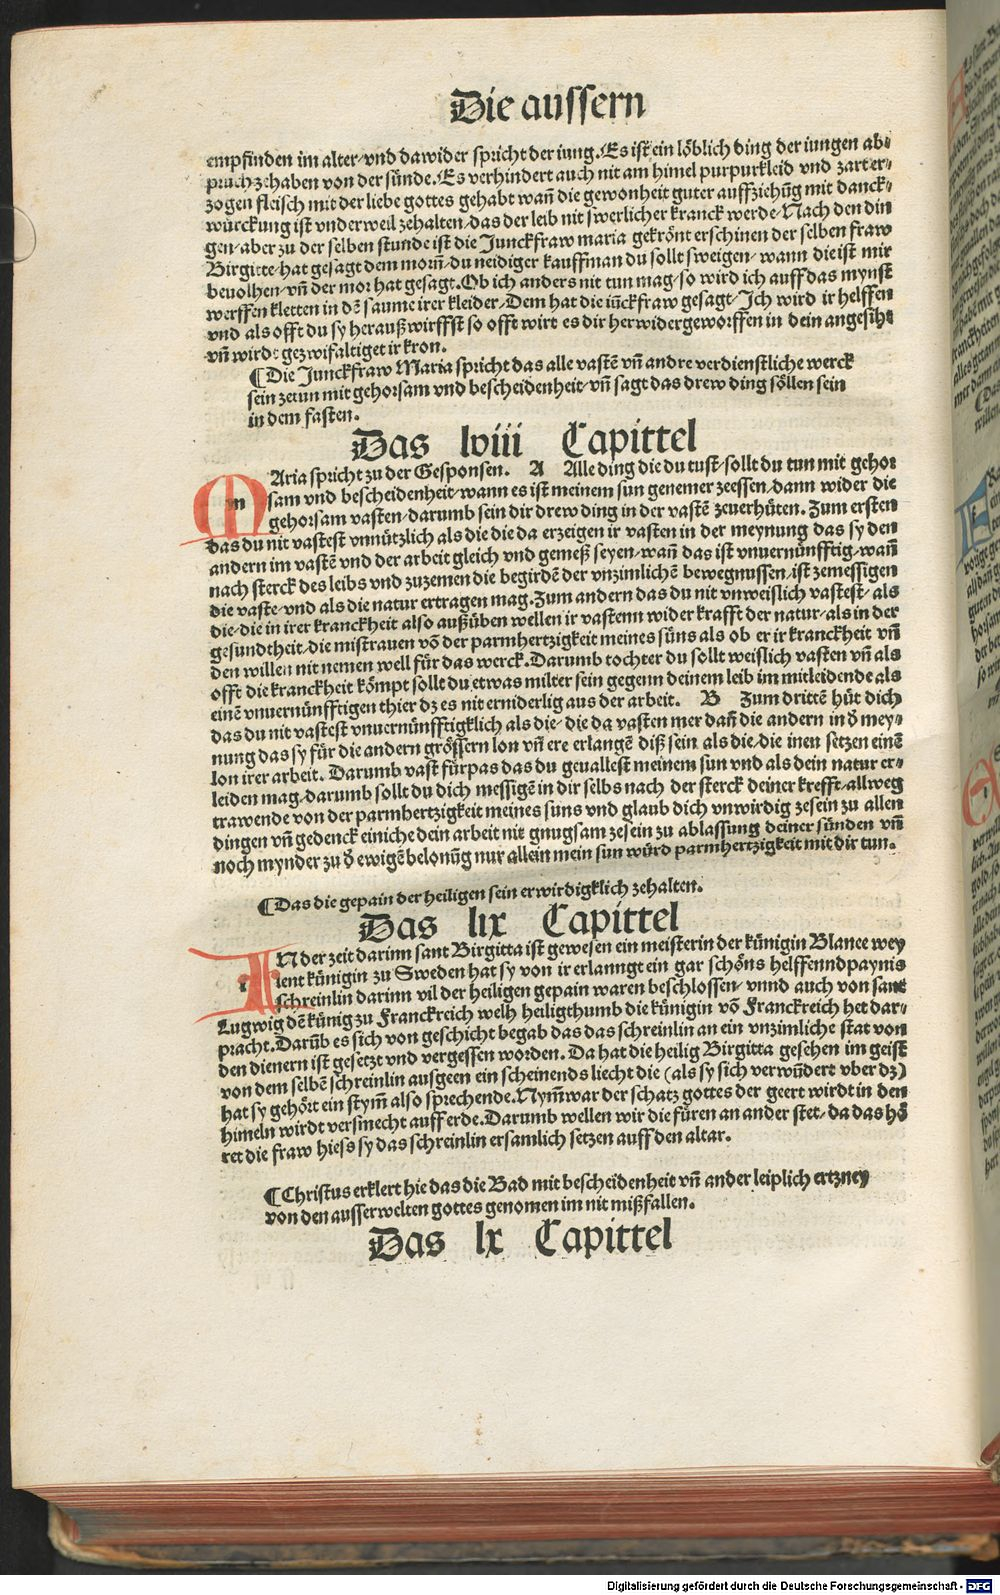 Die aussern
empfinden im alter/vnd dawider spricht der iung. Es ist ein löblich ding der iungen ab-
pruch zehaben von der sünde. Es verhindert auch nit am himel purpurkleid vnd zart er-
zogen fleisch mit der liebe gottes gehabt wañ die gewonheit guter auffziehũg mit danck-
würckung ist vnderweil zehalten/das der leib nit swerlicher kranck werde/Nach den din
gen/aber zu der selben stunde ist die Junckfraw maria gekrönt erschinen der selben fraw
Birgitte/hat gesagt dem morñ/du neidiger kauffman du sollt sweigen/wann die ist mir
beuolhen/vñ der mor hat gesagt. Ob ich anders nit tun mag/so wird ich auff das mynst
werffen kletten in dē saume irer kleider/Dem hat die iũckfraw gesagt/Ich wird ir helffen
vnd als offt du sy herauß wirffst so offt wirt es dir herwidergeworffen in dein angesiht
vñ wirdt gezwifaltiget ir kron.
¶Die Junckfraw Maria spricht das alle vastē vñ andre verdienstliche werck
sein zetun mit gehorsam vnd bescheidenheit/vñ sagt das drew ding söllen sein
in dem fasten.
Das lviii Capittel
MAria spricht zu der Gesponsen. A Alle ding die du tust/sollt du tun mit gehor
sam vnd bescheidenheit/wann es ist meinem sun genemer zeessen/dann wider die
gehorsam vasten/darumb sein dir drew ding in der vastē zeuerhüten. Zum ersten
das du nit vastest vnnützlich als die die da erzeigen ir vasten in der meynung das sy den
andern im vastē vnd der arbeit gleich vnd gemeß seyen/wañ das ist vnuernünfftig/wañ
nach sterck des leibs vnd zuzemen die begirdē der vnzimlichē bewegnussen/ist zemessigen
die vaste/vnd als die natur ertragen mag. Zum andern das du nit vnweislich vastest/als
die/die in irer kranckheit also außüben wellen ir vastenn wider krafft der natur/als in der
gesundtheit/die mistrauen vō der parmhertzigkeit meines süns als ob er ir kranckheit vñ
den willen nit nemen well für das werck. Darumb tochter du sollt weislich vasten vñ als
offt die kranckheit kömpt sollt du etwas milter sein gegenn deinem leib im mitleidende als
einē vnuernünfftigen thier dz es nit erniderlig aus der arbeit. B Zum drittē hüt dich
das du nit vastest vnuernünfftigklich als die/die da vasten mer dañ die andern in d̄ mey-
nung das sy für die andern grössern lon vñ ere erlangē diß sein als die/die inen setzen einē
lon irer arbeit. Darumb vast fürpas das du geuallest meinem sun vnd als dein natur er-
leiden mag/darumb sollt du dich messigē in dir selbs nach der sterck deiner krefft/allweg
trawende von der parmhertzigkeit meines suns vnd glaub dich vnwirdig zesein zu allen
dingen vñ gedenck einiche dein arbeit nit gnugsam zesein zu ablassung deiner sünden vñ
noch mynder zu d̄ ewigē belonũg nur allein mein sun würd parmhertzigkeit mit dir tun.
¶Das die gepain der heiligen sein erwirdigklich zehalten.
Das lix Capittel
IN der zeit darinn sant Birgitta ist gewesen ein meisterin der künigin Blance wey
lent künigin zu Sweden hat sy von ir erlanngt ein gar schöns helffenndpaynis
schreinlin darinn vil der heiligen gepain waren beschlossen/vnnd auch von sant
Lugwig dē künig zu Franckreich welh heiligthumb die künigin vō Franckreich het dar-
pracht. Darũb es sich von geschicht begab das das schreinlin an ein vnzimliche stat von
den dienern ist gesetzt vnd vergessen worden. Da hat die heilig Birgitta gesehen im geist
von dem selbē schreinlin ausgeen ein scheinends liecht die (als sy sich verwũdert vber dz)
hat sy gehört ein stym̃ also sprechende. Nym̃war der schatz gottes der geert wirdt in den
himeln wirdt versmecht auff erde. Darumb wellen wir die füren an ander stet/da das hö
ret die fraw hiess sy das schreinlin ersamlich setzen auff den altar.
¶Christus erklert hie das die Bad mit bescheidenheit vñ ander leiplich ertzney
von den ausserwelten gottes genomen im nit mißfallen.
Das lx Capittel
Digitalisierung gefördert durch die Deutsche Forschungsgemeinschaft - DFG